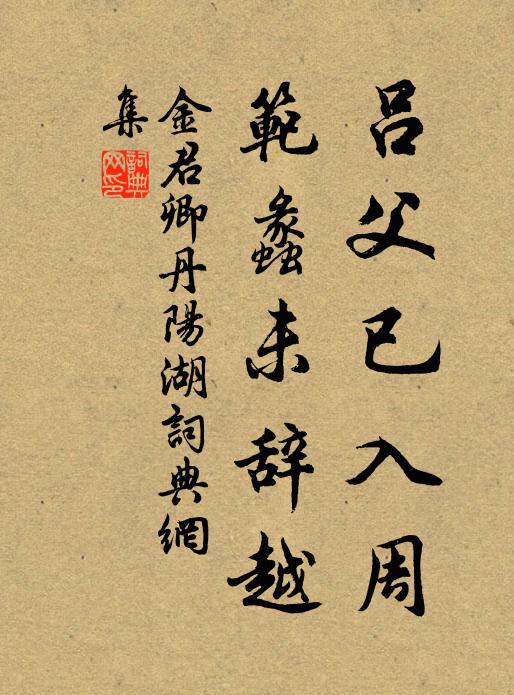 吕父已入周
範蠡未辞越
金君卿丹陽湖詞典網
集
詞典
网印